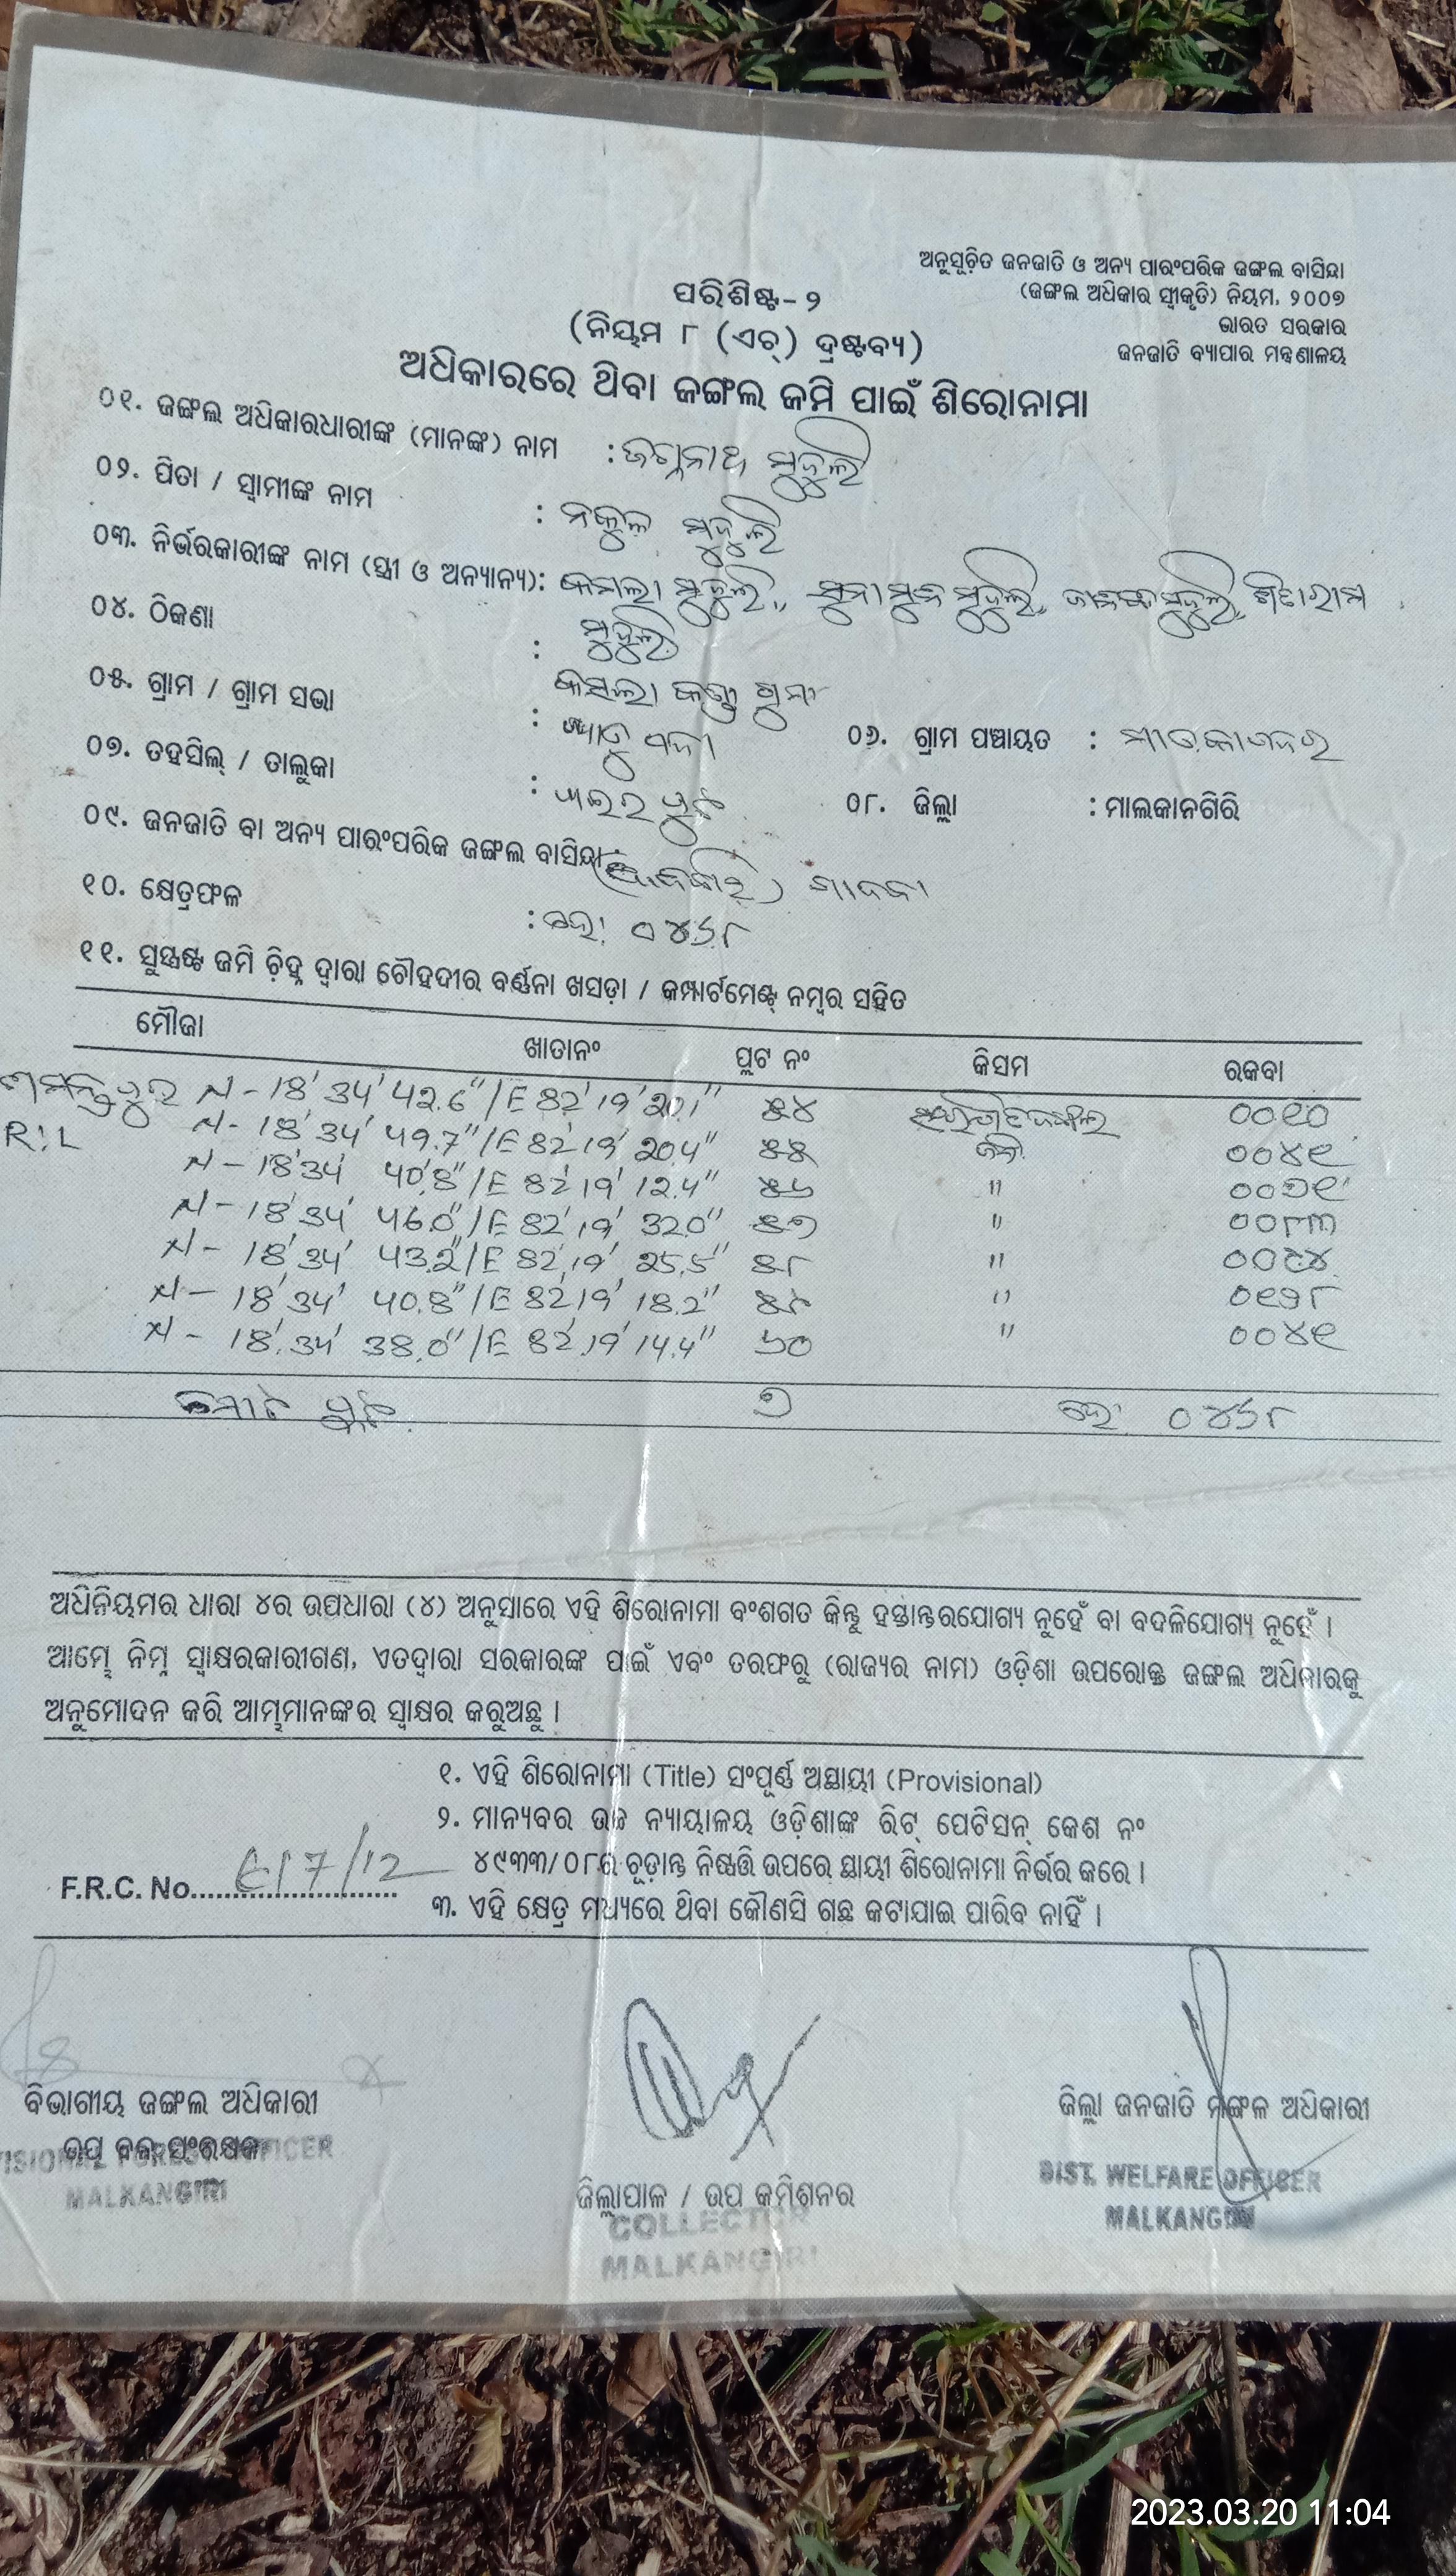 ଅନୁସୂଚିତ ଜନଜାତି ଓ ଅନ୍ୟ ପାରଂପରିକ ଜଙ୍ଗଲ ବାସିନ୍ଦା
(ଜଙ୍ଗଲ ଅଧିକାର ସ୍ୱୀକୃତି) ନିୟମ, ୨୦୦୭
ଭାରତ ସରକାର
ଜନଜାତି ବ୍ୟାପାର ମନ୍ତ୍ରଣାଳୟ
ପରିଶିଷ୍ଟ-୨
(ନିୟମ ୮ (ଏଚ୍) ଦ୍ରଷ୍ଟବ୍ୟ)
ଅଧିକାରରେ ଥିବା ଜଙ୍ଗଲ ଜମି ପାଇଁ ଶିରୋନାମା
୦୧. ଜଙ୍ଗଲ ଅଧିକାରଧାରୀଙ୍କ (ମାନଙ୍କ) ନାମ : ଜଗନ୍ନାଥ ମୁଦୁଲି
୦୨. ପିତା / ସ୍ୱାମୀଙ୍କ ନାମ : ନକୁଳ ମୁଦୁଲି
୦୩. ନିର୍ଭରକାରୀଙ୍କ ନାମ (ସ୍ତ୍ରୀ ଓ ଅନ୍ୟାନ୍ୟ): କମଲା ମୁଦୁଲି, ମୁଦୁଲି, ମୁଦୁଲି,
ମୁଦୁଲି
୦୪. ଠିକଣା :
୦୫. ଗ୍ରାମ / ଗ୍ରାମ ସଭା :
୦୬. ଗ୍ରାମ ପଞ୍ଚାୟତ :
୦୭. ତହସିଲ୍ / ତାଲୁକା :
୦୮. ଜିଲ୍ଲା : ମାଲକାନଗିରି
୦୯. ଜନଜାତି ବା ଅନ୍ୟ ପାରଂପରିକ ଜଙ୍ଗଲ ବାସିନ୍ଦା :
୧୦. କ୍ଷେତ୍ରଫଳ : ହେ: ୦୪୬୮
୧୧. ସୁସ୍ପଷ୍ଟ ଜମି ଚିହ୍ନ ଦ୍ୱାରା ଚୌହଦୀର ବର୍ଣ୍ଣନା ଖସଡ଼ା / କମ୍ପାର୍ଟମେଣ୍ଟ୍ ନମ୍ବର ସହିତ
ମୌଜା ଖାତାନଂ ପ୍ଲଟ ନଂ କିସମ ରକବା
N-18' 34' 42.6"/E 82' 19' 20.1" ୫୪ ୦୦୧୦
R.L N-18' 34' 49.7"/E 82' 19' 20.4" ୫୫ ୦୦୪୧
N-18' 34' 40.8"/E 82' 19' 12.4" ୫୬ " ୦୦୭୧
N-18' 34' 46.0"/E 82' 19' 32.0" ୫୭ " ୦୦୮୩
N-18' 34' 43.2"/E 82' 19' 25.5" ୫୮ "
N-18' 34' 40.8"/E 82' 19' 18.2" ୫୯ "
N-18' 34' 38.0"/E 82' 19' 14.4" ୬୦ " ୦୦୪୧
ମୋଟ ପ୍ଲଟ ୭ ହେ: ୦୪୬୮
ଅଧିନିୟମର ଧାରା ୪ର ଉପଧାରା (୪) ଅନୁସାରେ ଏହି ଶିରୋନାମା ବଂଶଗତ କିନ୍ତୁ ହସ୍ତାନ୍ତରଯୋଗ୍ୟ ନୁହେଁ ବା ବଦଳିଯୋଗ୍ୟ ନୁହେଁ ।
ଆମ୍ଭେ ନିମ୍ନ ସ୍ୱାକ୍ଷରକାରୀଗଣ, ଏତଦ୍ୱାରା ସରକାରଙ୍କ ପାଇଁ ଏବଂ ତରଫରୁ (ରାଜ୍ୟର ନାମ) ଓଡ଼ିଶା ଉପରୋକ୍ତ ଜଙ୍ଗଲ ଅଧିକାରକୁ
ଅନୁମୋଦନ କରି ଆମ୍ଭମାନଙ୍କର ସ୍ୱାକ୍ଷର କରୁଅଛୁ ।
୧. ଏହି ଶିରୋନାମା (Title) ସଂପୂର୍ଣ୍ଣ ଅସ୍ଥାୟୀ (Provisional)
୨. ମାନ୍ୟବର ଉଚ୍ଚ ନ୍ୟାୟାଳୟ ଓଡ଼ିଶାଙ୍କ ରିଟ୍ ପେଟିସନ୍ କେଶ ନଂ
୪୯୩୩/୦୮ର ଚୂଡ଼ାନ୍ତ ନିଷ୍ପତ୍ତି ଉପରେ ସ୍ଥାୟୀ ଶିରୋନାମା ନିର୍ଭର କରେ ।
F.R.C. No.
୩. ଏହି କ୍ଷେତ୍ର ମଧ୍ୟରେ ଥିବା କୌଣସି ଗଛ କଟାଯାଇ ପାରିବ ନାହିଁ ।
ବିଭାଗୀୟ ଜଙ୍ଗଲ ଅଧିକାରୀ
ଉପ ବନ ସଂରକ୍ଷକ
VISIONAL FOREST OFFICER
MALKANGIRI
ଜିଲ୍ଲାପାଳ / ଉପ କମିଶନର
COLLECTOR
MALKANGIRI
ଜିଲ୍ଲା ଜନଜାତି ମଙ୍ଗଳ ଅଧିକାରୀ
DIST. WELFARE OFFICER
MALKANGIRI
2023.03.20 11:04